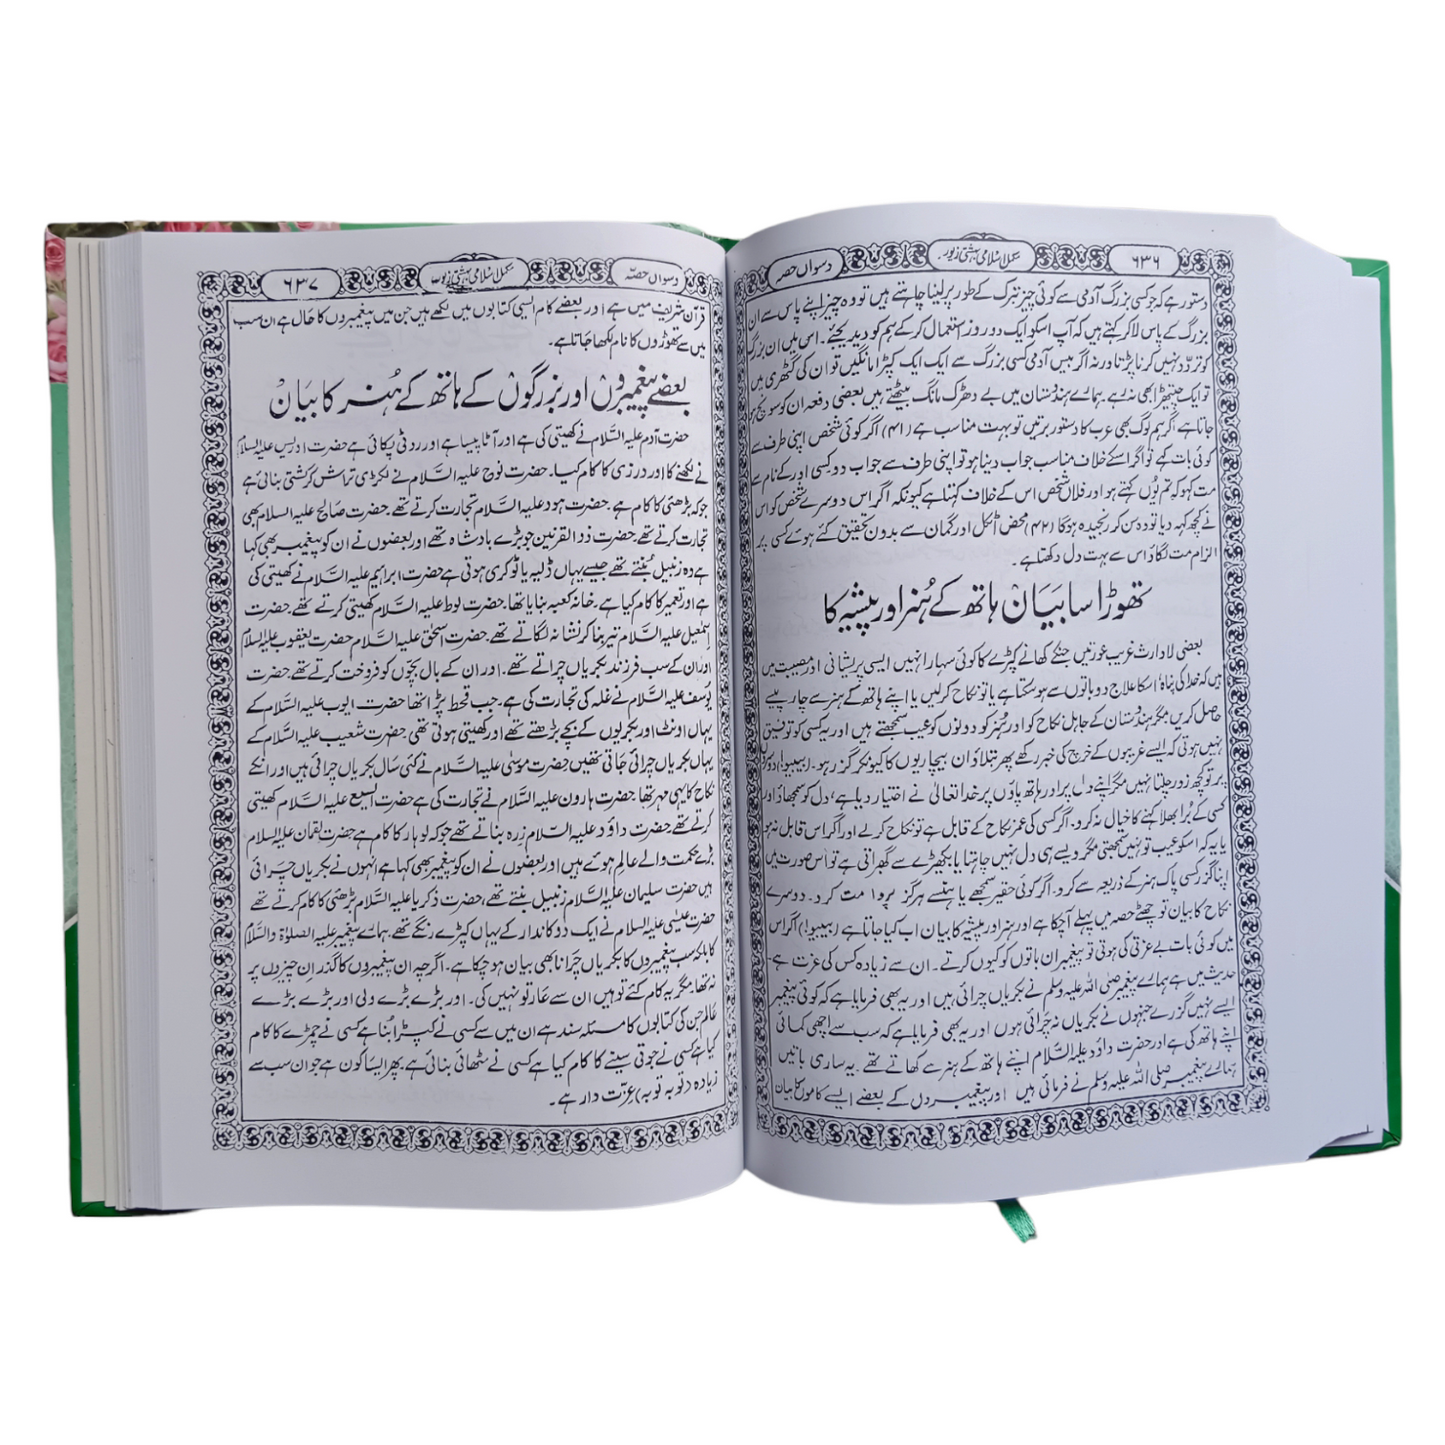 ۶۳۶
مکمل اسلامی بہشتی زیور
دسواں حصہ
دستور ہے کہ جو کسی بزرگ آدمی سے کوئی چیز تبرک کے طور پر لینا چاہتے ہیں تو وہ چیز اپنے پاس سے ان
بزرگ کے پاس لا کر کہتے ہیں کہ آپ اسکو ایک دو روز استعمال کر کے ہم کو دیدیجئے۔ اس میں ان بزرگ
کو تردّد نہیں کرنا پڑتا ورنہ اگر بیس آدمی کسی بزرگ سے ایک ایک کپڑا مانگیں تو ان کی گٹھری میں
تو ایک چیتھڑا بھی نہ رہے۔ ہمارے ہندوستان میں بے دھڑک مانگ بیٹھتے ہیں بعضی دفعہ ان کو سوچ ہو
جاتا ہے، اگر ہم لوگ بھی عرب کا دستور برتیں تو بہت مناسب ہے (۴۱) اگر کوئی شخص اپنی طرف سے
کوئی بات کہے تو اگر اسکے خلاف مناسب جواب دینا ہو تو اپنی طرف سے جواب دو کسی اور کے نام سے
مت کہو کہ تم یُوں کہتے ہو اور فلاں شخص اس کے خلاف کہتا ہے کیونکہ اگر اس دوسرے شخص کو اس
نے کچھ کہہ دیا تو وہ سن کر رنجیدہ ہوگا (۴۲) محض اٹکل اور گمان سے بدون تحقیق کئے ہوئے کسی پر
الزام مت لگاؤ اس سے بہت دل دکھتا ہے۔
تھوڑا سا بیان ہاتھ کے ہُنر اور پیشہ کا
بعضی لاوارث غریب عورتیں جنکے کھانے کپڑے کا کوئی سہارا نہیں ایسی پریشانی اور مصیبت میں
ہیں کہ خدا کی پناہ! اسکا علاج دو باتوں سے ہوسکتا ہے یا تو نکاح کرلیں یا اپنے ہاتھ کے ہنر سے چار پیسے
حاصل کریں مگر ہندوستان کے جاہل نکاح کو اور ہُنر کو دونوں کو عیب سمجھتے ہیں اور یہ کسی کو توفیق
نہیں ہوتی کہ ایسے غریبوں کے خرچ کی خبر رکھے پھر بتلاؤ ان بیچاریوں کا کیونکر گزر ہو۔ (بیبیو!) دوسروں
پر تو کچھ زور چلتا نہیں مگر اپنے دل پر اور ہاتھ پاؤں پر خدا تعالیٰ نے اختیار دیا ہے، دل کو سمجھاؤ اور
کسی کے بُرا بھلا کہنے کا خیال نہ کرو۔ اگر کسی کی عمر نکاح کے قابل ہے تو نکاح کرلے اور اگر اس قابل نہ ہو
یا یہ کہ اسکو عیب تو نہیں سمجھتی مگر ویسے ہی دل نہیں چاہتا یا بکھیڑے سے گھبراتی ہے تو اس صورت میں
اپنا گزر کسی پاک ہنر کے ذریعہ سے کرو۔ اگر کوئی حقیر سمجھے یا ہنسے ہرگز پروا مت کرو۔ دوسرے
نکاح کا بیان تو چھٹے حصہ میں پہلے آچکا ہے اور ہنر اور پیشہ کا بیان اب کیا جاتا ہے (بیبیو!) اگر اس
میں کوئی بات بے عزتی کی ہوتی تو پیغمبر ان باتوں کو کیوں کرتے۔ ان سے زیادہ کس کی عزت ہے۔
حدیث میں ہے ہمارے پیغمبر صلی اللہ علیہ وسلم نے بکریاں چرائی ہیں اور یہ بھی فرمایا ہے کہ کوئی پیغمبر
ایسے نہیں گزرے جنہوں نے بکریاں نہ چَرائی ہوں اور یہ بھی فرمایا ہے کہ سب سے اچھی کمائی
اپنے ہاتھ کی ہے اور حضرت داؤد علیہ السّلام اپنے ہاتھ کے ہنر سے کھاتے تھے۔ یہ ساری باتیں
ہمارے پیغمبر صلی اللہ علیہ وسلم نے فرمائی ہیں اور پیغمبروں کے بعضے ایسے کاموں کا بیان
دسواں حصّہ
مکمل اسلامی بہشتی زیور
۶۳۷
قرآن شریف میں ہے اور بعضے کام ایسی کتابوں میں لکھے ہیں جن میں پیغمبروں کا حال ہے ان سب
میں سے تھوڑوں کا نام لکھا جاتا ہے۔
بعضے پیغمبروں اور بزرگوں کے ہاتھ کے ہُنر کا بیان
حضرت آدم علیہ السّلام نے کھیتی کی ہے اور آٹا پیسا ہے اور روٹی پکائی ہے حضرت ادریس علیہ السلام
نے لکھنے کا اور درزی کا کام کیا۔ حضرت نوح علیہ السّلام نے لکڑی تراش کر کشتی بنائی ہے
جو کہ بڑھئی کا کام ہے۔ حضرت ہود علیہ السّلام تجارت کرتے تھے۔ حضرت صالح علیہ السلام بھی
تجارت کرتے تھے۔ حضرت ذو القرنین جو بڑے بادشاہ تھے اور بعضوں نے ان کو پیغمبر بھی کہا
ہے وہ زنبیل بُنتے تھے جیسے یہاں ڈلیہ یا ٹوکری ہوتی ہے حضرت ابراہیم علیہ السّلام نے کھیتی کی
ہے اور تعمیر کا کام کیا ہے۔ خانہ کعبہ بنایا تھا۔ حضرت لوط علیہ السّلام کھیتی کرتے تھے۔ حضرت
اسمٰعیل علیہ السّلام تیر بنا کر نشانہ لگاتے تھے۔ حضرت اسحٰق علیہ السّلام حضرت یعقوب علیہ السلام
اور ان کے سب فرزند بکریاں چراتے تھے۔ اور ان کے بال بچّوں کو فروخت کرتے تھے۔ حضرت
یوسف علیہ السّلام نے غلہ کی تجارت کی ہے۔ جب قحط پڑا تھا حضرت ایوب علیہ السّلام کے
یہاں اونٹ اور بکریوں کے بچے بڑھتے تھے اور کھیتی ہوتی تھی۔ حضرت شعیب علیہ السّلام کے
یہاں بکریاں چرائی جاتی تھیں حضرت موسٰی علیہ السّلام نے کئی سال بکریاں چرائی ہیں اور انکے
نکاح کا یہی مہر تھا۔ حضرت ہارون علیہ السّلام نے تجارت کی ہے حضرت الیسع علیہ السّلام کھیتی
کرتے تھے۔ حضرت داؤد علیہ السّلام زرہ بناتے تھے جو کہ لوہار کا کام ہے حضرت لقمان علیہ السلام
بڑے حکمت والے عالم ہوئے ہیں اور بعضوں نے ان کو پیغمبر بھی کہا ہے انہوں نے بکریاں چرائی
ہیں حضرت سلیمان علیہ السّلام زنبیل بنتے تھے۔ حضرت ذکریا علیہ السّلام بڑھئی کا کام کرتے تھے
حضرت عیسٰی علیہ السلام نے ایک دوکاندار کے یہاں کپڑے رنگے تھے۔ ہمارے پیغمبر علیہ الصلوٰۃ والسّلام
کا بلکہ سب پیغمبروں کا بکریاں چَرانا بھی بیان ہو چکا ہے۔ اگرچہ ان پیغمبروں کا گذر ان چیزوں پر
نہ تھا۔ مگر یہ کام کئے تو ہیں ان سے عار تو نہیں کی۔ اور بڑے بڑے ولی اور بڑے بڑے
عالم جن کی کتابوں کا مسئلہ سند ہے ان میں سے کسی نے کپڑا بُنا ہے کسی نے چمڑے کا کام
کیا ہے کسی نے جوتی سینے کا کام کیا ہے کسی نے مٹھائی بنائی ہے۔ پھر ایسا کون ہے جو ان سب سے
زیادہ (توبہ توبہ) عِزّت دار ہے۔